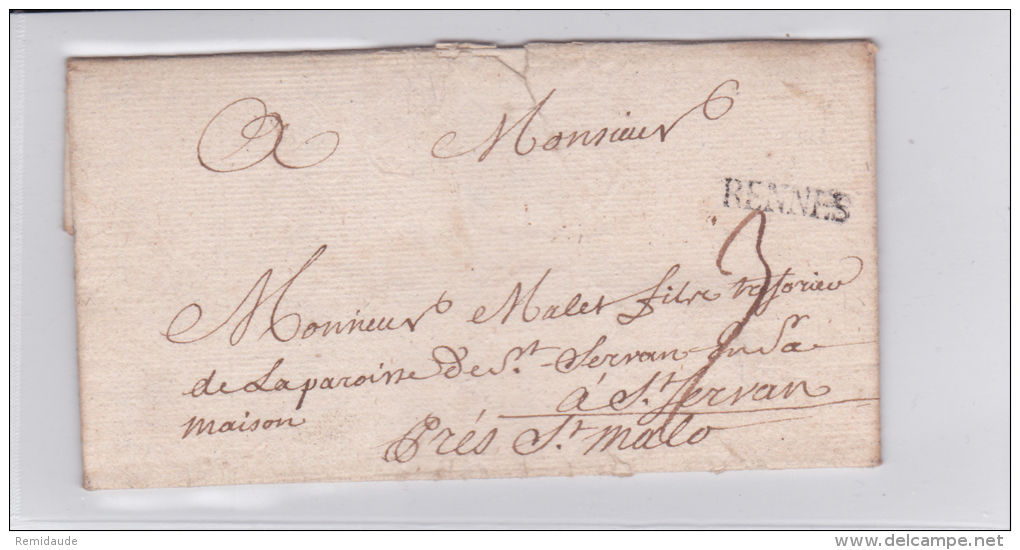 A Monsieur
RENNES
3
Monsieur Malet fils tresorier
de La paroisse de St. Servan en Sa
maison
à St. Servan
Prés St. malo
Remidaude
delcampe.net